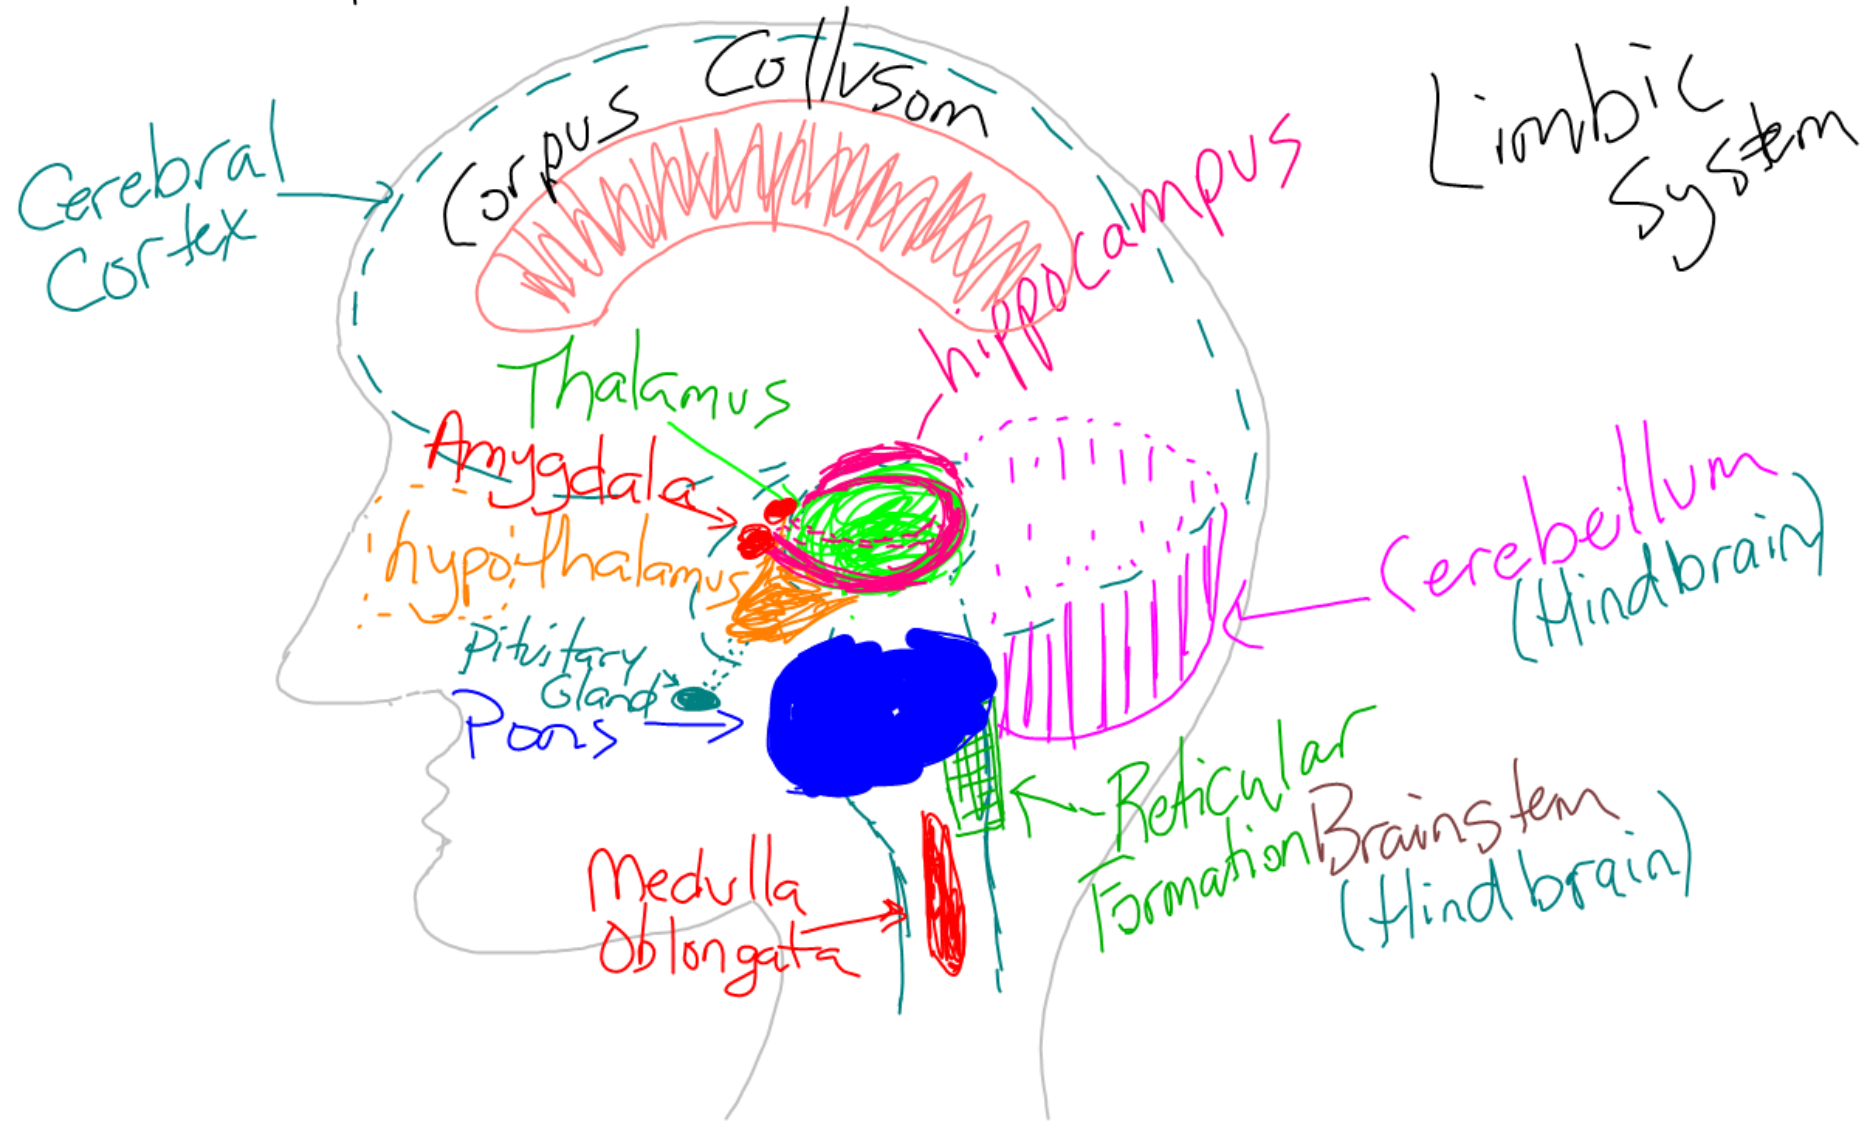 Corpus Collusom
Limbic
System
Cerebral
Cortex
hippocampus
Thalamus
Amygdala
hypothalamus
Pituitary
Gland
Pons
Cerebellum
(Hindbrain)
Reticular
Formation
Brainstem
(Hindbrain)
Medulla
Oblongata